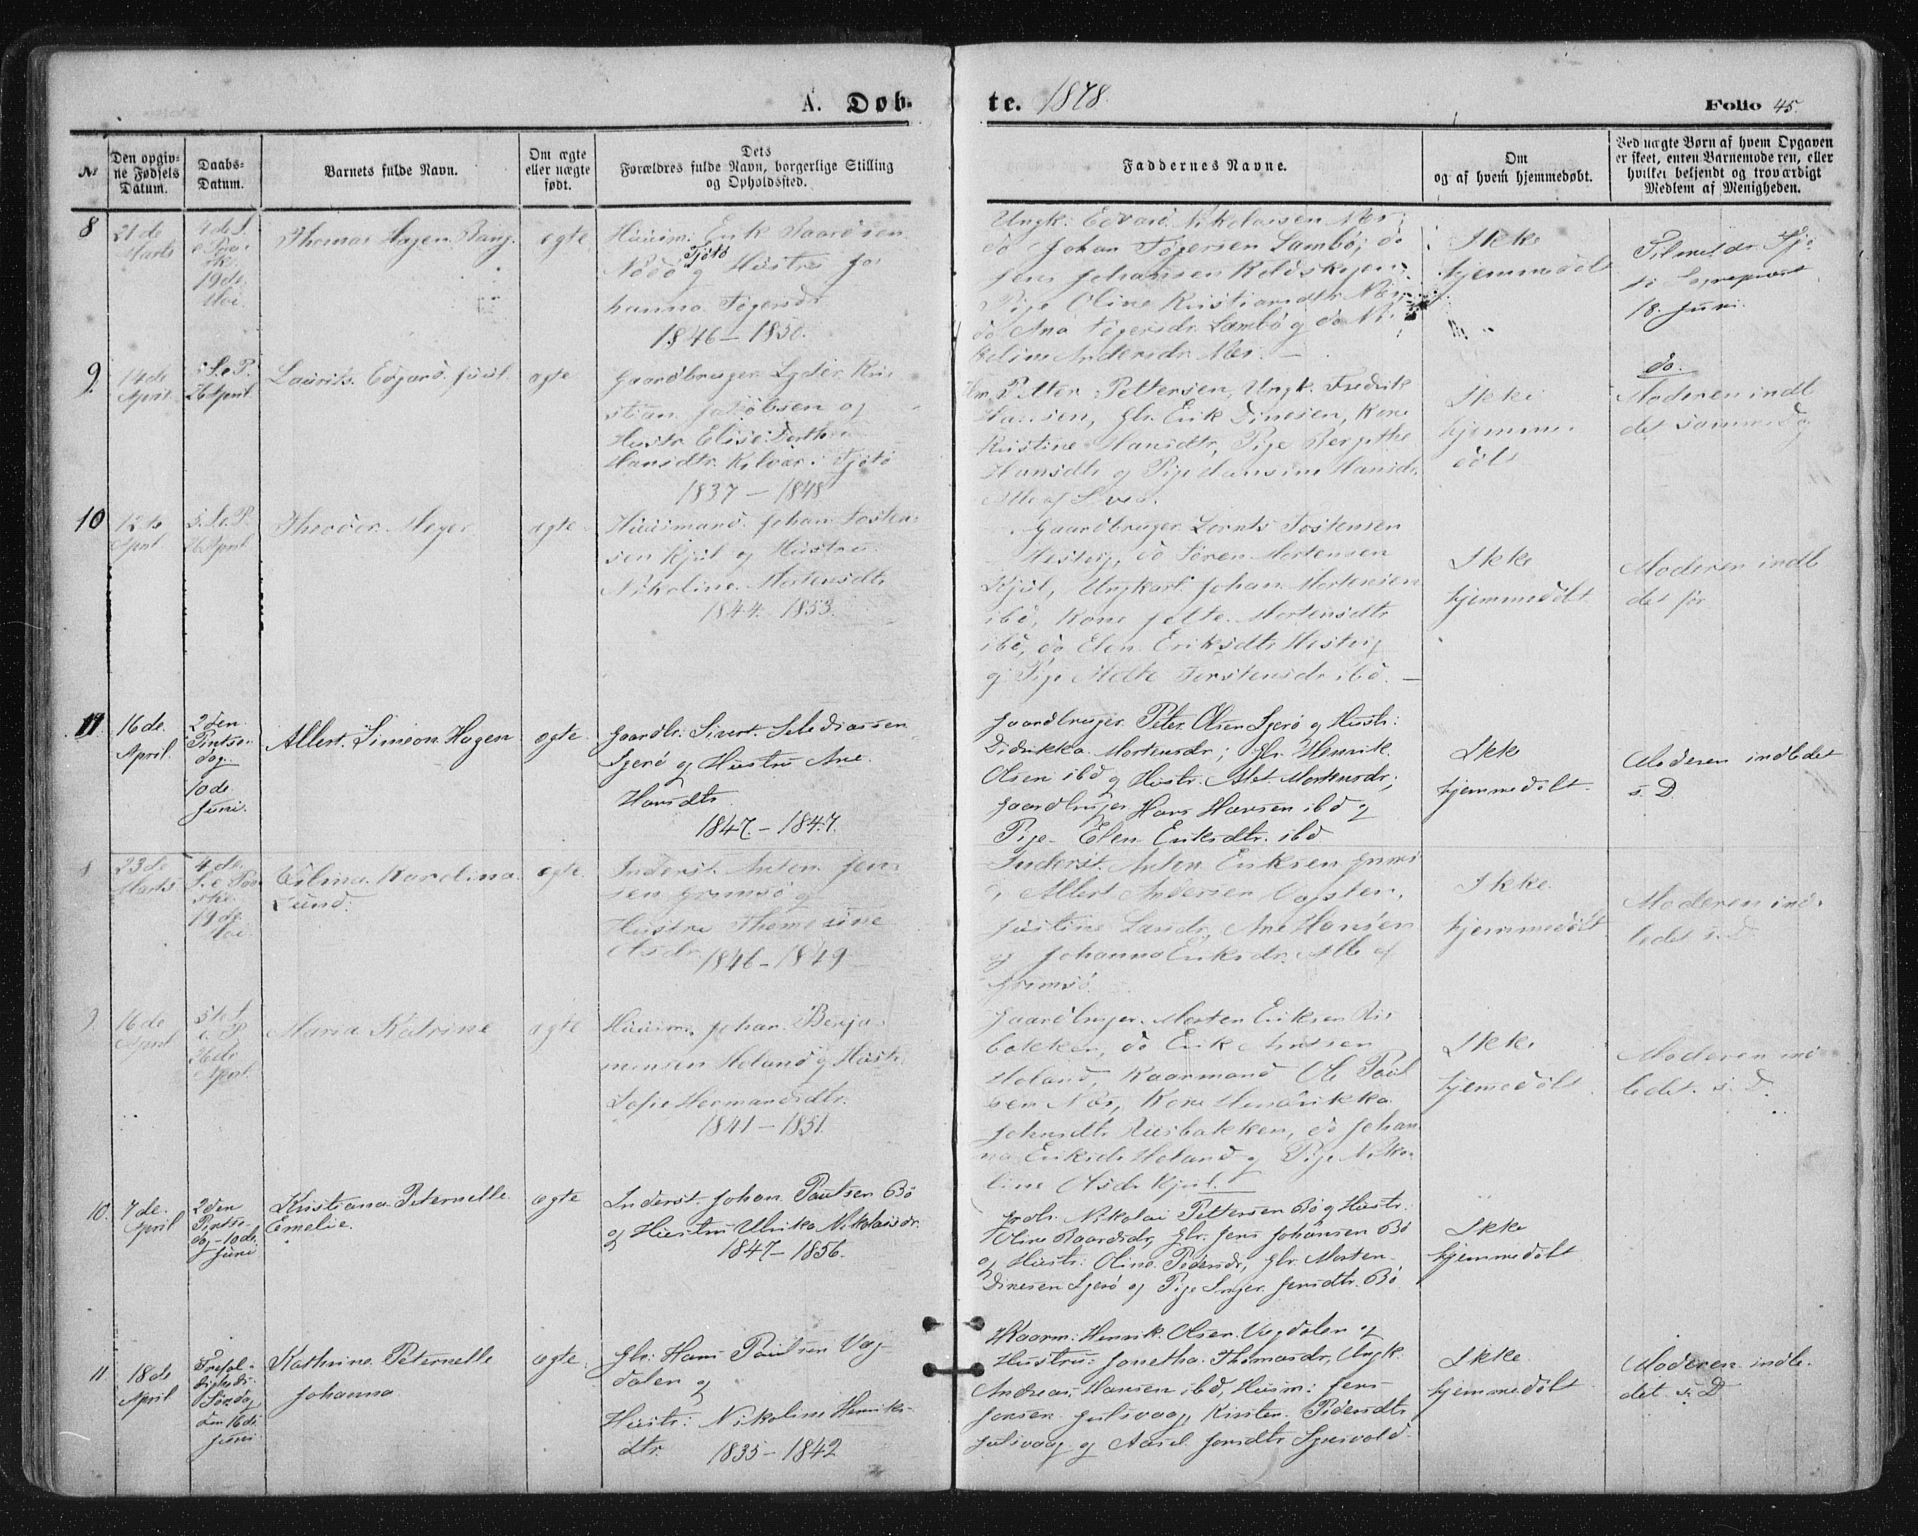 A. Døb-
te. 1878.
Folio 45.
№
Den opgiv-
ne Fødsels
Datum.
Daabs-
Datum.
Barnets fulde Navn.
Om ægte
eller uægte
født.
Dets
Forældres fulde Navn, borgerlige Stilling
og Opholdssted.
Faddernes Navne.
Om
og af hvem hjemmedøbt.
Ved uægte Børn af hvem Opgaven
er skeet, enten Barnemoderen, eller
hvilket bekjendt og troværdigt
Medlem af Menigheden.
8
21de
Marts
4de S.
e Paa-
ske
19de
Mai.
Thomas Hagen Bang.
ægte
Huusm: Erik
Tjøtø
og Hustru Jo-
hanna
1846 – 1850.
Ungk: Edvard Nikolaisen Næs
do Johan Lambø, do
Jens Johansen
Pige Oline Kristiansdtr. Næs
do Ana Lambø og do Ni-
koline Andersdr. Næs. –
Ikke
hjemmedøbt
Tilmeldt Tjø-
tø Sognepræst
18. Juni.
9
14de
April
S. e. P.
26 April
Laurits Edvard Juul
ægte
Gaardbruger Lyder Kri-
stian Jakobsen og
Hustr. Elise
Hansdtr. Kilvær i Tjøtø
1837 – 1848
Petter Pettersen, Ungk. Fredrik
Hansen, Gbr. Erik Dinesen, Kone
Kristine Hansdtr, Pige Bergithe
Hansdtr og Pige Hansine Hansdr.
Alle af
Ikke
hjemme-
døbt
do.
Moderen indl
det samme Dag
10
12te
April
5. S. e. P.
26 April
Theodor Meyer
ægte
Huusmand Johan Tosten-
sen Kjul og Hustru
Nikoline Mortensdtr
1844. 1853.
Gaardbruger Lornts Tostensen
Hestvig, do Søren Mortensen
Kjul, Ungkarl Johan Mortensen
ibd, Kone Mortensdtr
ibd, do Elen Eriksdtr Hestvig
og Pige Mette Torstensdr ibd. –
Ikke
hjemmedøbt
Moderen indl
det før
11
16de
April.
2den
Pintse-
dag
10de
Juni.
Albert Simeon Hagen
ægte
Gaardbr. Sivert
og Hustru Ane
Hansdtr.
1847. – 1847.
Gaardbruger Peter Olsen og Hustr:
Didrikka Mortensdr; Gbr. Henrik
Olsen ibd og Hustr. Mortensdr;
Gaardbruger Hans Hansen ibd og
Pige Elen Eriksdtr. ibd
Ikke
hjemmedøbt.
Moderen indledet
s. D.
8
23de
Marts
4de
S. e Paa-
ske
19de
Mai
Vilina Karolina
Lund.
ægte
Inderst. Anton Jen-
sen Grimsø og
Hustru Thomesine
Olsdr.
1846 – 1849
Inderst. Anton Eriksen
Albert Andersen
Justine Larsdr, Ane Hansen
og Johanna Eriksdr. Alle af
Grimsø
Ikke
hjemmedøbt
Moderen ind-
ledet s. D.
9
16de
April
5te S.
e. P.
26de
April
Maria Katrine
ægte
Huusm. Johan Benja-
minsen Høland og Hustr.
Sofie Hermansdtr.
1841 – 1851.
Gaardbruger Morten Eriksen Riis-
bakken, do Erik
Høland, Kaarmand Ole Paul
sen Næs, Kone Henrikka
Johnsdtr. Riisbakken, do Johan-
na Eriksdr Høland og Pige Niko-
line Olsdr. Kjul.
Ikke
hjemmedøbt
Moderen ind-
ledet. s. D.
10
7de
April
2den
Pintse-
dag – 10de
Juni
Kristiana Peternelle
Emelie.
ægte
Inderst. Johan Paulsen Bø
og Hustru Ulrika Nikolaisdr.
1847 – 1856.
Grdbr. Nikolai Pettersen Bø og Hustr:
Oline Baardsdr, Gbr. Jens Johansen Bø
og Hustr: Oline Pedersdr, Gbr. Morten
Dinesen og Pige Inger Jensdtr. Bø
Ikke
hjemmedøbt
11
18de
April
Trefol-
digheds
Søndag
den 16de
Juni
Kathrine Peternelle
Johanna
ægte
Gbr: Hans Paulsen Vaag-
dalen og
Hustr: Nikoline Henriks-
dtr.
1835 – 1842
Kaarm: Henrik Olsen Vaagdalen og
Hustru: Jonetha Thomasdr, Ungk.
Andreas Hansen ibd, Husm: Jens
Jensen Julsvaag, Kirsten Pedersdtr
Julsvaag og Aasel Jensdtr
Ikke
hjemmedøbt
Moderen indle-
det s. D